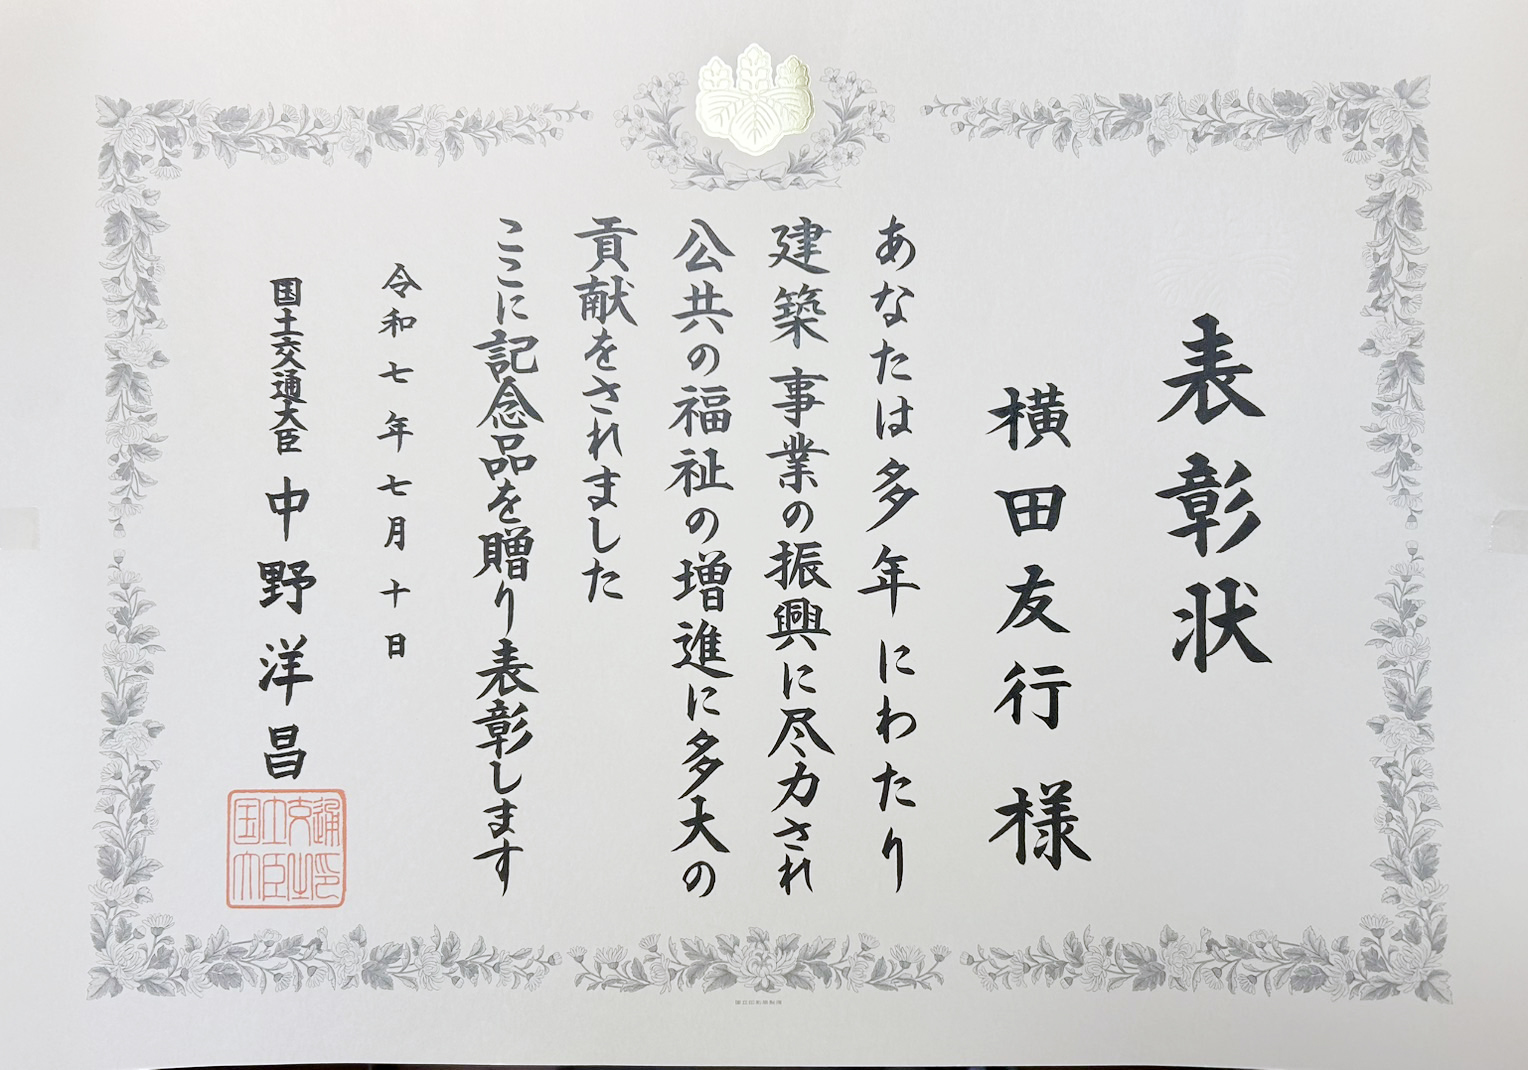 表彰状
横田友行様
あなたは多年にわたり
建築事業の振興に尽力され
公共の福祉の増進に多大の
貢献をされました
ここに記念品を贈り表彰します
令和七年七月十日
国土交通大臣 中野洋昌